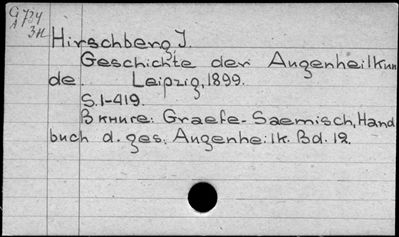 G 734
A 3H
Hirschberg J.
Geschichte der Augenheilkun
de Leipzig, 1899.
S. 1-419.
В книге: Graefe-Saemisch, Hand
buch d. ges. Augenheilk. Bd. 12.